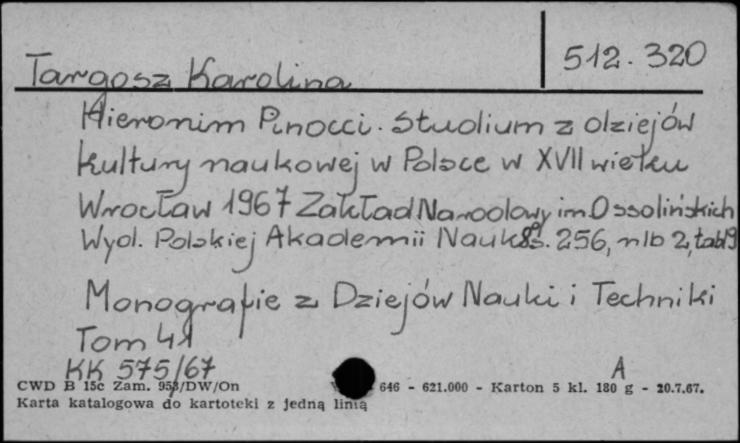 512.320
Targosz Karolina
Hieronim Pinocci. Studium z dziejów
kultury naukowej w Polsce w XVII wieku
Wrocław 1967 Zakład Narodowy im. Ossolińskich
Wyd. Polskiej Akademii Nauk 8° s. 256, nlb 2, tabl 9
Monografie z Dziejów Nauki i Techniki
Tom 41
KK 575/67 A
CWD B 15c Zam. 953/DW/On 646 - 621.000 - Karton 5 kl. 180 g - 20.7.67.
Karta katalogowa do kartoteki z jedną linią